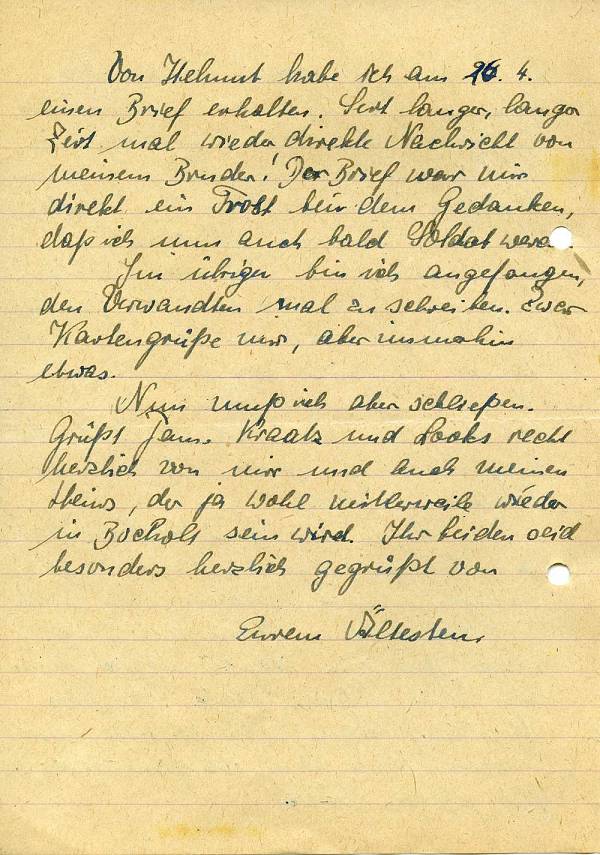 Von Helmut habe ich am 26. 4.
einen Brief erhalten. Seit langer, langer
Zeit mal wieder direkte Nachricht von
meinem Bruder! Der Brief war mir
direkt ein Trost bei dem Gedanken,
daß ich nun auch bald Soldat werde.
Im übrigen bin ich angefangen,
den Verwandten mal zu schreiben. Zwar
Kartengrüße nur, aber immerhin
etwas.
Nun muß ich aber schließen.
Grüßt Fam. Kraatz und Looks recht
herzlich von mir und auch meinen
Heins, der ja wohl mittlerweile wieder
in Bocholt sein wird. Ihr beiden seid
besonders herzlich gegrüßt von
Eurem Ältesten.